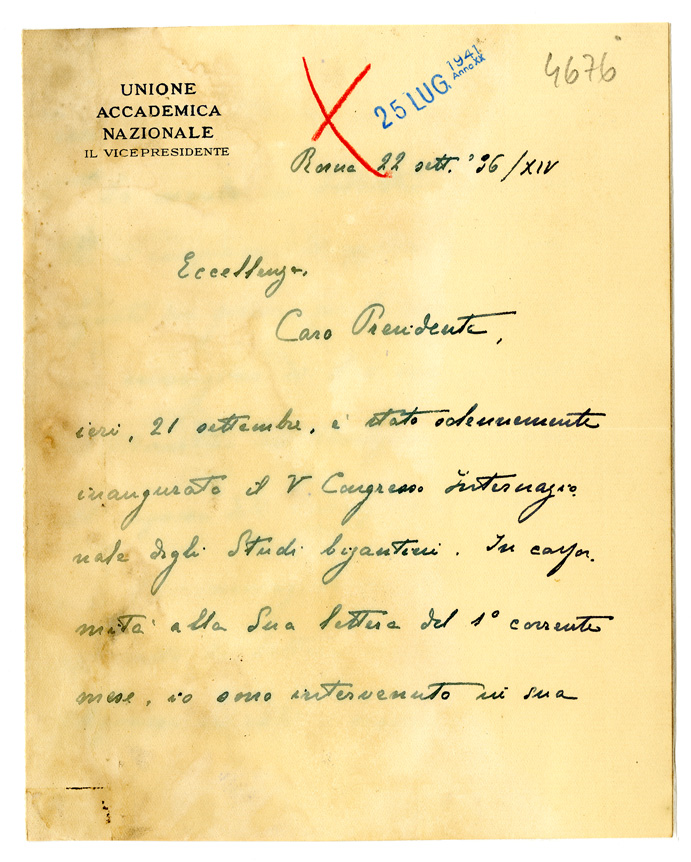 UNIONE
ACCADEMICA
NAZIONALE
IL VICEPRESIDENTE
25 LUG. 1941
Anno XIX
4676
Roma 22 sett. '36/XIV
Eccellenza,
Caro Presidente,
ieri, 21 settembre, è stato solennemente
inaugurato il V Congresso Internazio
nale degli Studi bizantini. In confor-
mità alla Sua lettera del 1° corrente
mese, io sono intervenuto in sua